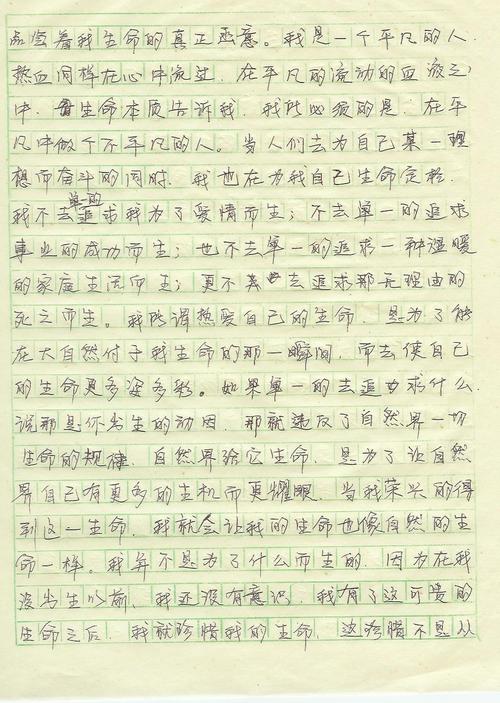 着我生命的真正函意。我是一个平凡的人
热血同样在心中流过，在平凡的流动的血液之
中，生命本质告诉我，我所必须的是，在平
凡中做个不平凡的人。当人们去为自己某一理
想而奋斗的同时，我也在为我自己生命定
单的
我不去追求我为了爱情而生；不去单一的追求
事业的成功而生；也不去单一的追求一种温暖
的家庭生活而生；更不去追求那无理由的
死之而生。我所谓热爱自己的生命，是为了能
在大自然付于我生命的那一瞬间，而去使自己
的生命更多姿多彩。如果单一的去追求什么
说那是你出生的动因，那就违反了自然界一切
生命的规律，自然界给它生命，是为了让自然
界自己有更多的生机而更耀眼，当我荣兴的得
到这一生命，我就会让我的生命也像自然的生
命一样。我并不是为了什么而生的，因为在我
没出生以前，我还没有意识，我有了这可贵的
生命之后，我就珍惜我的生命，这珍腊不是从